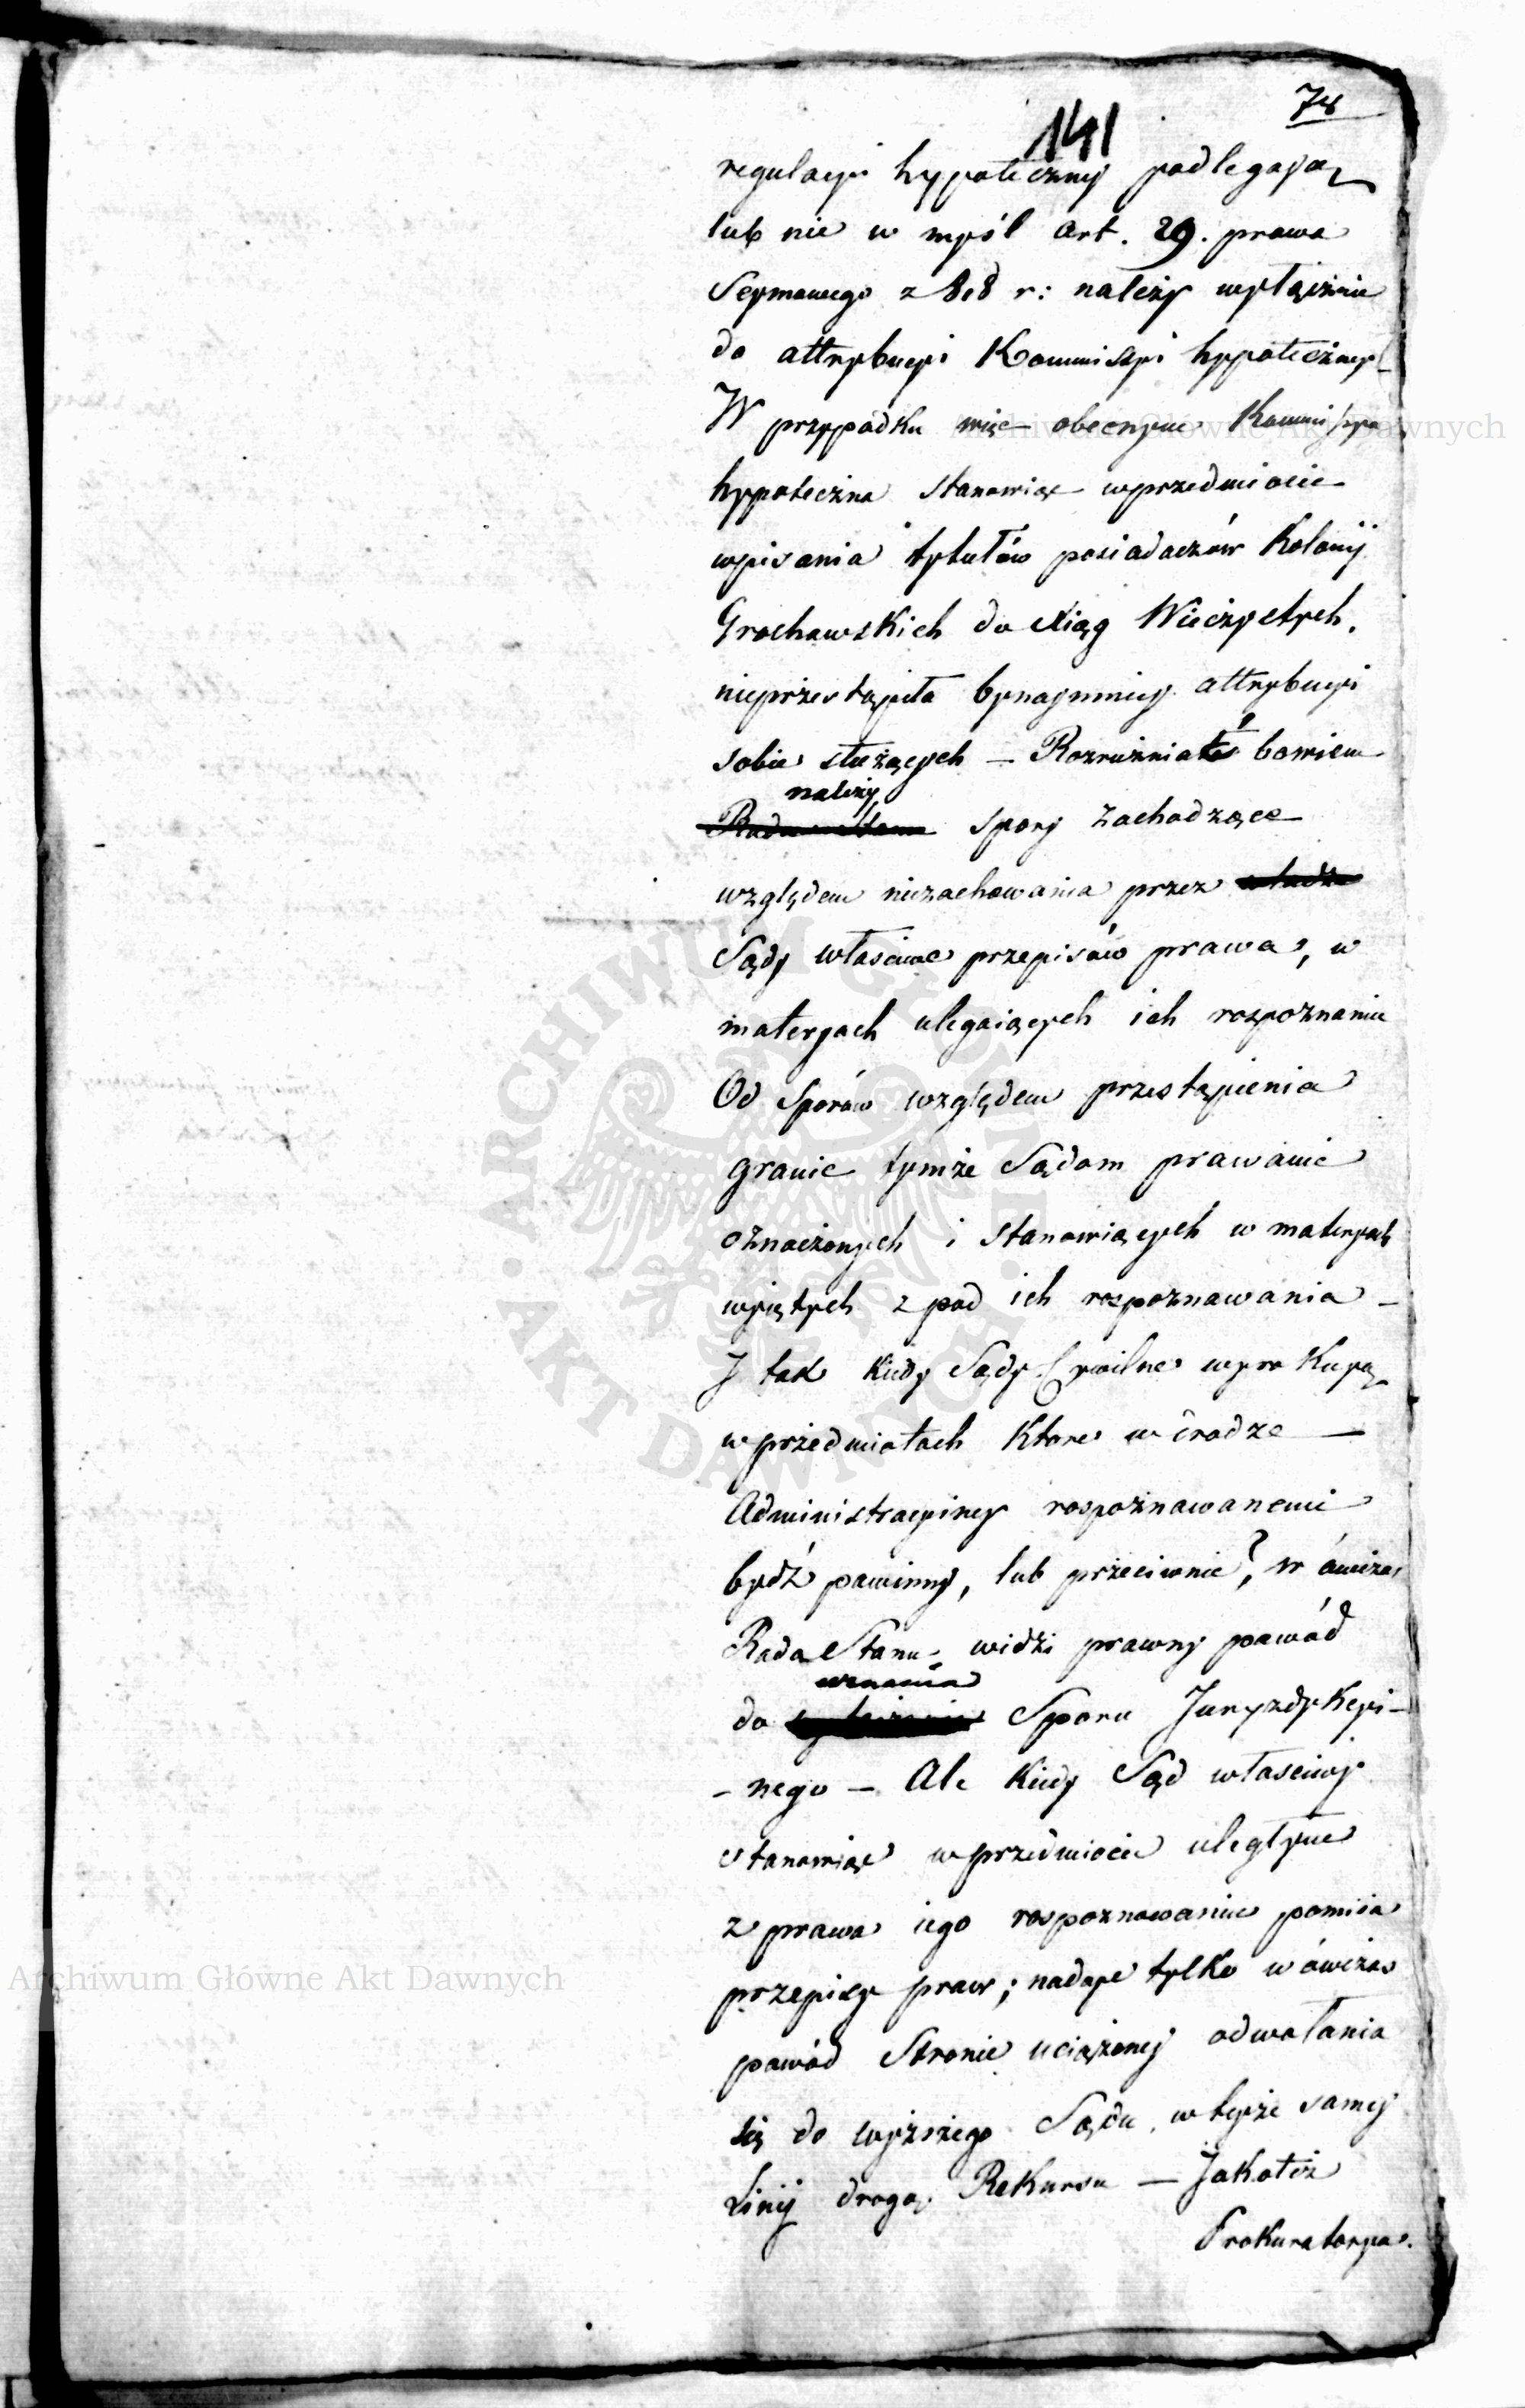 78
141
regulacyi hypoteczney podlegaią
lub nie w myśl art. 29. prawa
Seymowego z 818 r: należy wyłącznie
do attrybucyi Kommissyi hypoteczney
W przypadku więc obecnym Kommissya
hypoteczna stanowiąc w przedmiocie
wpisania tytułów posiadaczów Kolonij
Grochowskich do Xiąg Wieczystych,
nieprzestąpiła bynaymniey attrybucyi
sobie służących — Rozrużniać bowiem
należy
Rada Stanu spory zachodzące
względem niezachowania przez władze
Sądy właściwe przepisów prawa, w
materyach ulegaiących ich rozpoznaniu
Od Sporów względem przestąpienia
granic tymże Sądom prawnie
oznaczonych i stanowiących w materyach
wyiętych z pod ich rozpoznawania —
I tak kiedy Sądy Cywilne wyrokuyą
w przedmiotach które w drodze —
Administracyiney rospoznawanemi
bydź powinny, lub przeciwnie?, w ówczas
Rada Stanu widzi prawny powód
wznania
do Sporu Juryzdykcyi-
- nego — Ale kiedy Sąd właściwy
stanowiąc w przedmiocie uległym
z prawa iego rospoznawaniu pomiia
przepisy praw; nadaje tylko w ówczas
powód Stronie uciążoney odwołania
się do wyższego Sądu, w teyże samey
Linij drogą Rekursu — Jakoteż
Prokuratorya
Archiwum Główne Akt Dawnych
Archiwum Główne Akt Dawnych
ARCHIWUM GŁÓWNE · AKT DAWNYCH ·